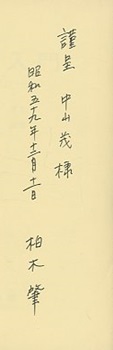 謹呈 中山茂様
昭和五十九年十二月十二日
柏木肇